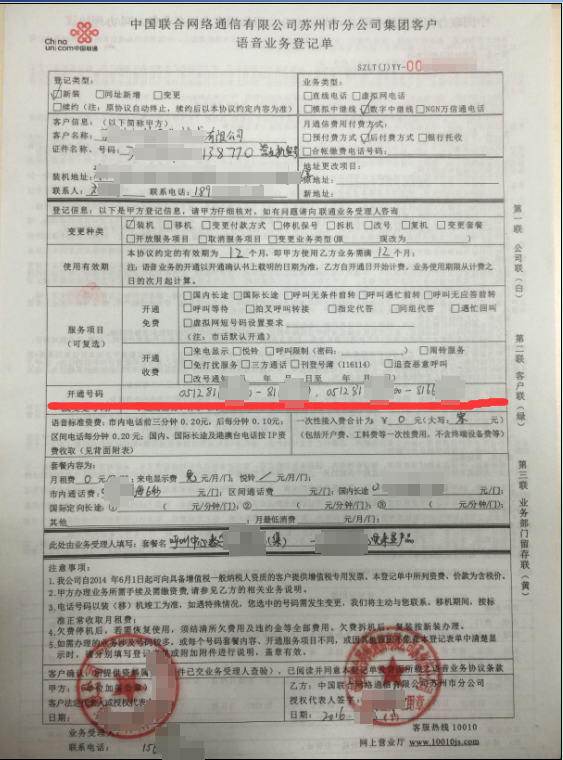 中国联合网络通信有限公司苏州市分公司集团客户
语音业务登记单
China
unicom中国联通
SZLT(J)YY-00
登记类型：
☑新装 □同址新增 □变更
□续约（注：原协议自动终止，续约后以本协议约定内容为准）
业务类型：
□直线电话 □虚拟网电话
□模拟中继线 ☑数字中继线 □NGN万信通电话
客户信息：（以下简称甲方）
客户名称： 有限公司
证件名称、号码： 38770
装机地址：
联系人： 联系电话：189
月通信费用付费方式：
□预付费方式 ☑后付费方式 □银行托收
□合帐缴费电话号码：
地址更改项目：
原地址：
新地址：
登记信息：以下是甲方登记信息，请甲方仔细核对，如有问题请向联通业务受理人咨询
变更种类
☑装机 □移机 □变更付款方式 □停机保号 □拆机 □改号 □复机 □变更套餐
□开放服务项目 □取消服务项目 □变更业务类型(原 现改为 )
使用有效期
本协议约定的有效期为 12 个月，即甲方使用乙方业务需满 12 个月；
注：语音业务的开通以开通确认书上载明的日期为准，乙方自开通日开始计费，业务使用期限从计费之
日的次月起计算。
服务项目
（可复选）
开通
免费
□国内长途 □国际长途 □呼叫无条件前转 □呼叫遇忙前转 □呼叫无应答前转
□呼叫等待 □拍叉呼叫转接 □指定代答 □同组代答 □遇忙回叫
□虚拟网短号码设置要求
（注：市话默认开通）
开通
收费
□来电显示 □悦铃 □呼叫限制（密码： ） □闹铃服务
□免打扰服务 □三方通话 □刊登号簿（116114） □追查恶意呼叫
□改号通知 年 月 日至 年 月
开通号码
051281 0-81 , 051281 0-8166
语音标准资费：市内电话前三分钟 0.20 元，后每分钟 0.10 元；
区间电话每分钟 0.20 元；国内、国际长途及港澳台电话按 IP 资
费收取（见背面附表）
一次性接入费合计为 ￥ 0 元(大写：零 元)
（包括开户费、工料费等一次性费用，不含终端设备费等）
套餐内容为：
月租费 0 元/月/门；来电显示费 元/月/门；悦铃 / 元/月/门；
市内通话费： 元/月/门；区间通话费 元/月/门；国内长途 元/月/门；
国际定向长途：① （元/分钟/门）；② （元/分钟/门）；③ （元/分钟/门）
其他 ；月最低消费 元/月/门；
此处由业务受理人填写：套餐名 呼叫中心 产品
注意事项：
1.我公司自2014年6月1日起可向具备增值税一般纳税人资质的客户提供增值税专用发票，本登记单中所列资费、价款为含税价。
2.甲方办理业务所需手续及需缴资费，请参见乙方的相关业务说明。
3.电话号码以装（移）机竣工为准，如遇特殊情况，您选中的号码需发生变更，我们将主动与您联系。移机期间，按标
准正常收取月租费；
4.欠费停机后，若需恢复使用，须结清所欠费用及违约金等全部费用，欠费拆机后，复装按新装办理。
5.如需办理的业务涉及号码较多，或每个号码套餐内容、开通服务项目不同，或因其他原因不能在本登记表单中清楚显
示时，请分别填写登记 或用如附加附件进行说明，盖章有效。
客户确认 所提供资料 件已交业务受理人查验），已阅读并同意本登记单及背面所载之语音业务协议条款
甲方： （单位加盖公章）
客户法定代表人或授权代表
日期：
乙方：中国联合网络通信有限公司苏州市分公司
授权代表人签字
日期： 2016
业务受理
联系电话： 156
客服热线 10010
网上营业厅 www.10010js.com
第一联 公司联（白）
第二联 客户联（绿）
第三联 业务部门留存联（黄）